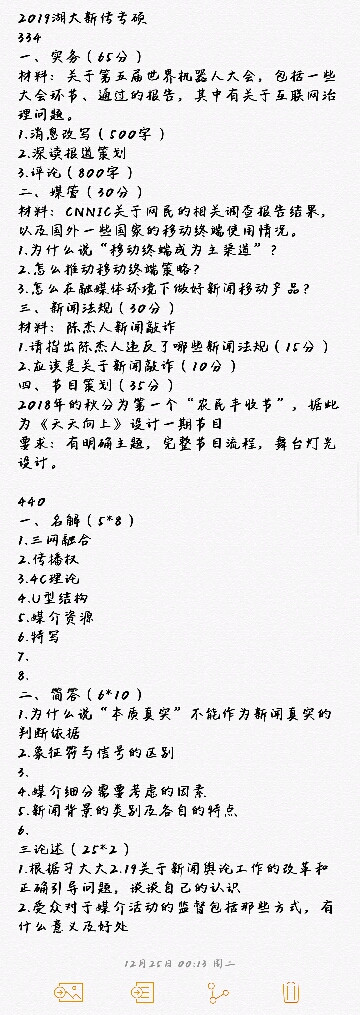 2019湖大新传考硕
334
一、实务（65分）
材料：关于第五届世界机器人大会，包括一些
大会环节、通过的报告，其中有关于互联网治
理问题。
1.消息改写（500字）
2.深读报道策划
3.评论（800字）
二、媒管（30分）
材料：CNNIC关于网民的相关调查报告结果，
以及国外一些国家的移动终端使用情况。
1.为什么说“移动终端成为主渠道”？
2.怎么推动移动终端策略？
3.怎么在融媒体环境下做好新闻移动产品？
三、新闻法规（30分）
材料：陈杰人新闻敲诈
1.请指出陈杰人违反了哪些新闻法规（15分）
2.应该是关于新闻敲诈（10分）
四、节目策划（35分）
2018年的秋分为第一个“农民丰收节”，据此
为《天天向上》设计一期节目
要求：有明确主题，完整节目流程，舞台灯光
设计。
440
一、名解（5*8）
1.三网融合
2.传播权
3.4C理论
4.U型结构
5.媒介资源
6.特写
7.
8.
二、简答（6*10）
1.为什么说“本质真实”不能作为新闻真实的
判断依据
2.象征符与信号的区别
3.
4.媒介细分需要考虑的因素
5.新闻背景的类别及各自的特点
6.
三论述（25*2）
1.根据习大大2.19关于新闻舆论工作的改革和
正确引导问题，谈谈自己的认识
2.受众对于媒介活动的监督包括那些方式，有
什么意义及好处
12月25日 00:13 周二